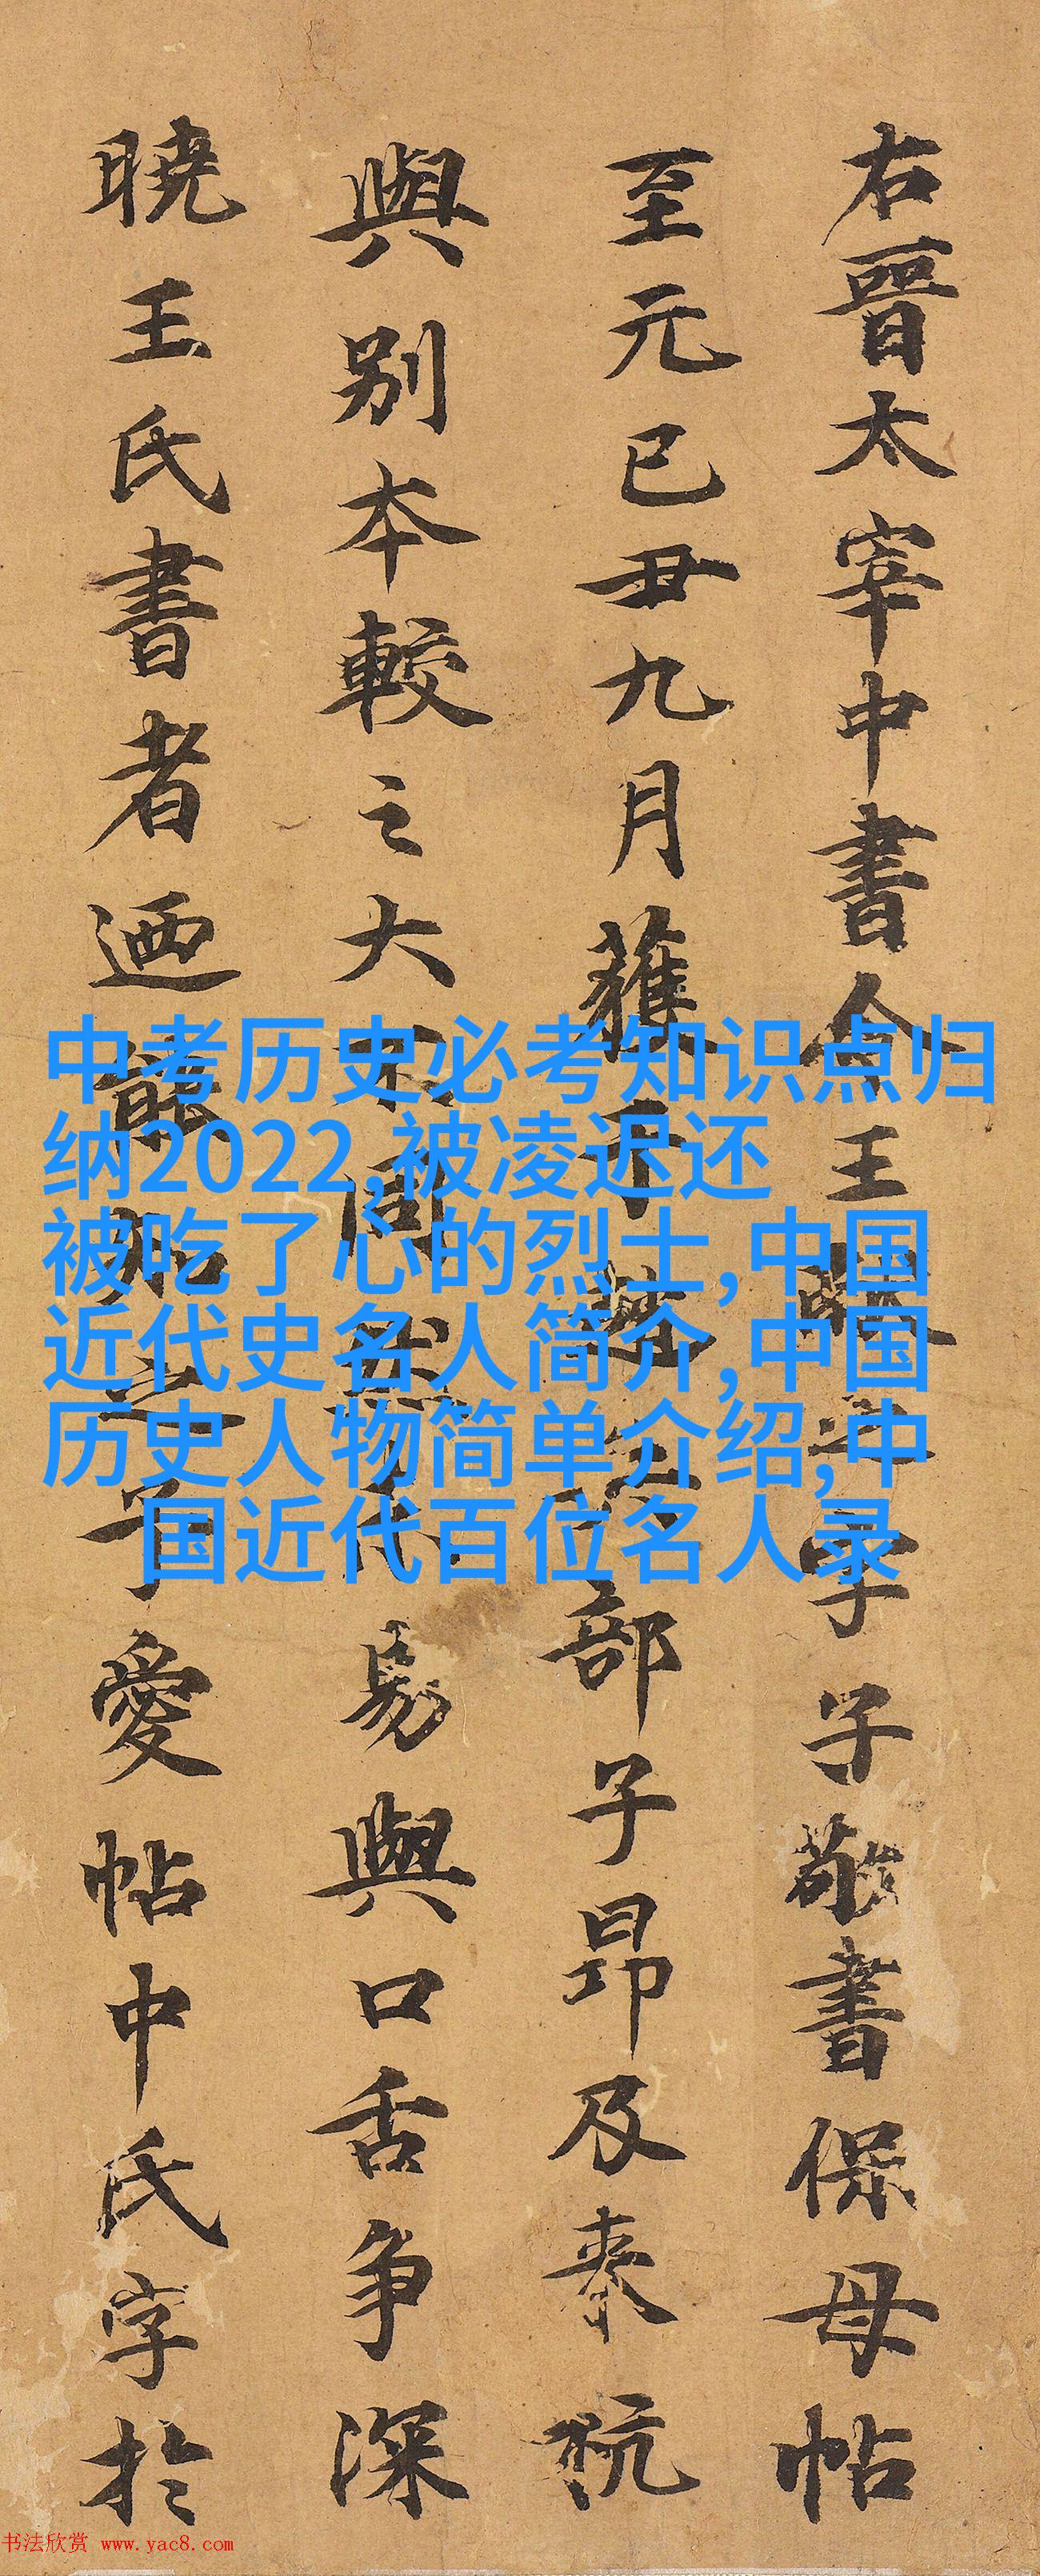 右晉太宰中書令王獻之字子敬書保母帖
至元己丑九月獲于
部子昂及泰杭
與別本較之大不同
易與口舌争深
曉王氏書者迺能知之子愛帖中氏字於
中考历史必考知识点归
纳2022,被凌迟还
被吃了心的烈士,中国
近代史名人简介,中国
历史人物简单介绍,中
国近代百位名人录
书法欣赏 www.yac8.com